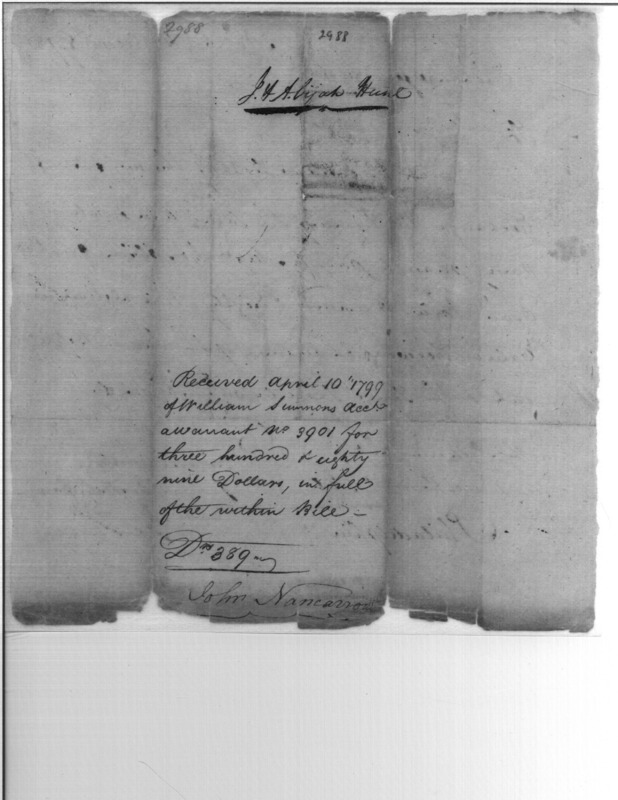 2988
2988
J. & Abijah Hunt
Received April 10th 1799
of William Simmons Acct
a warrant No 3901 for
three hundred & eighty
nine Dollars, in full
of the within Bill –
Drs 389
John Nancarrow